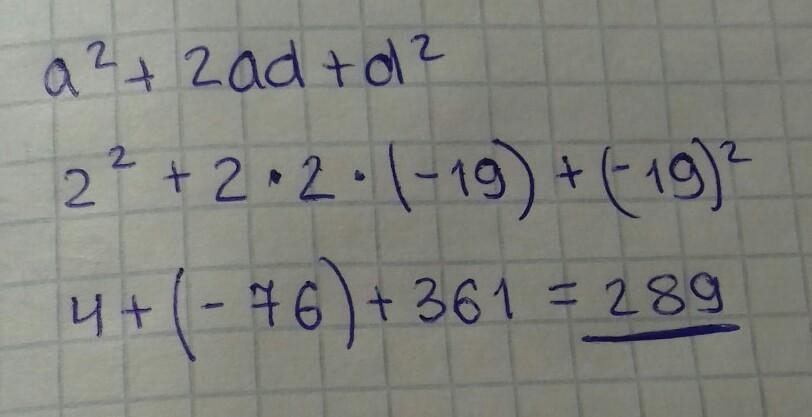 a² + 2ad + d²
2² + 2 · 2 · (-19) + (-19)²
4 + (-76) + 361 = 289